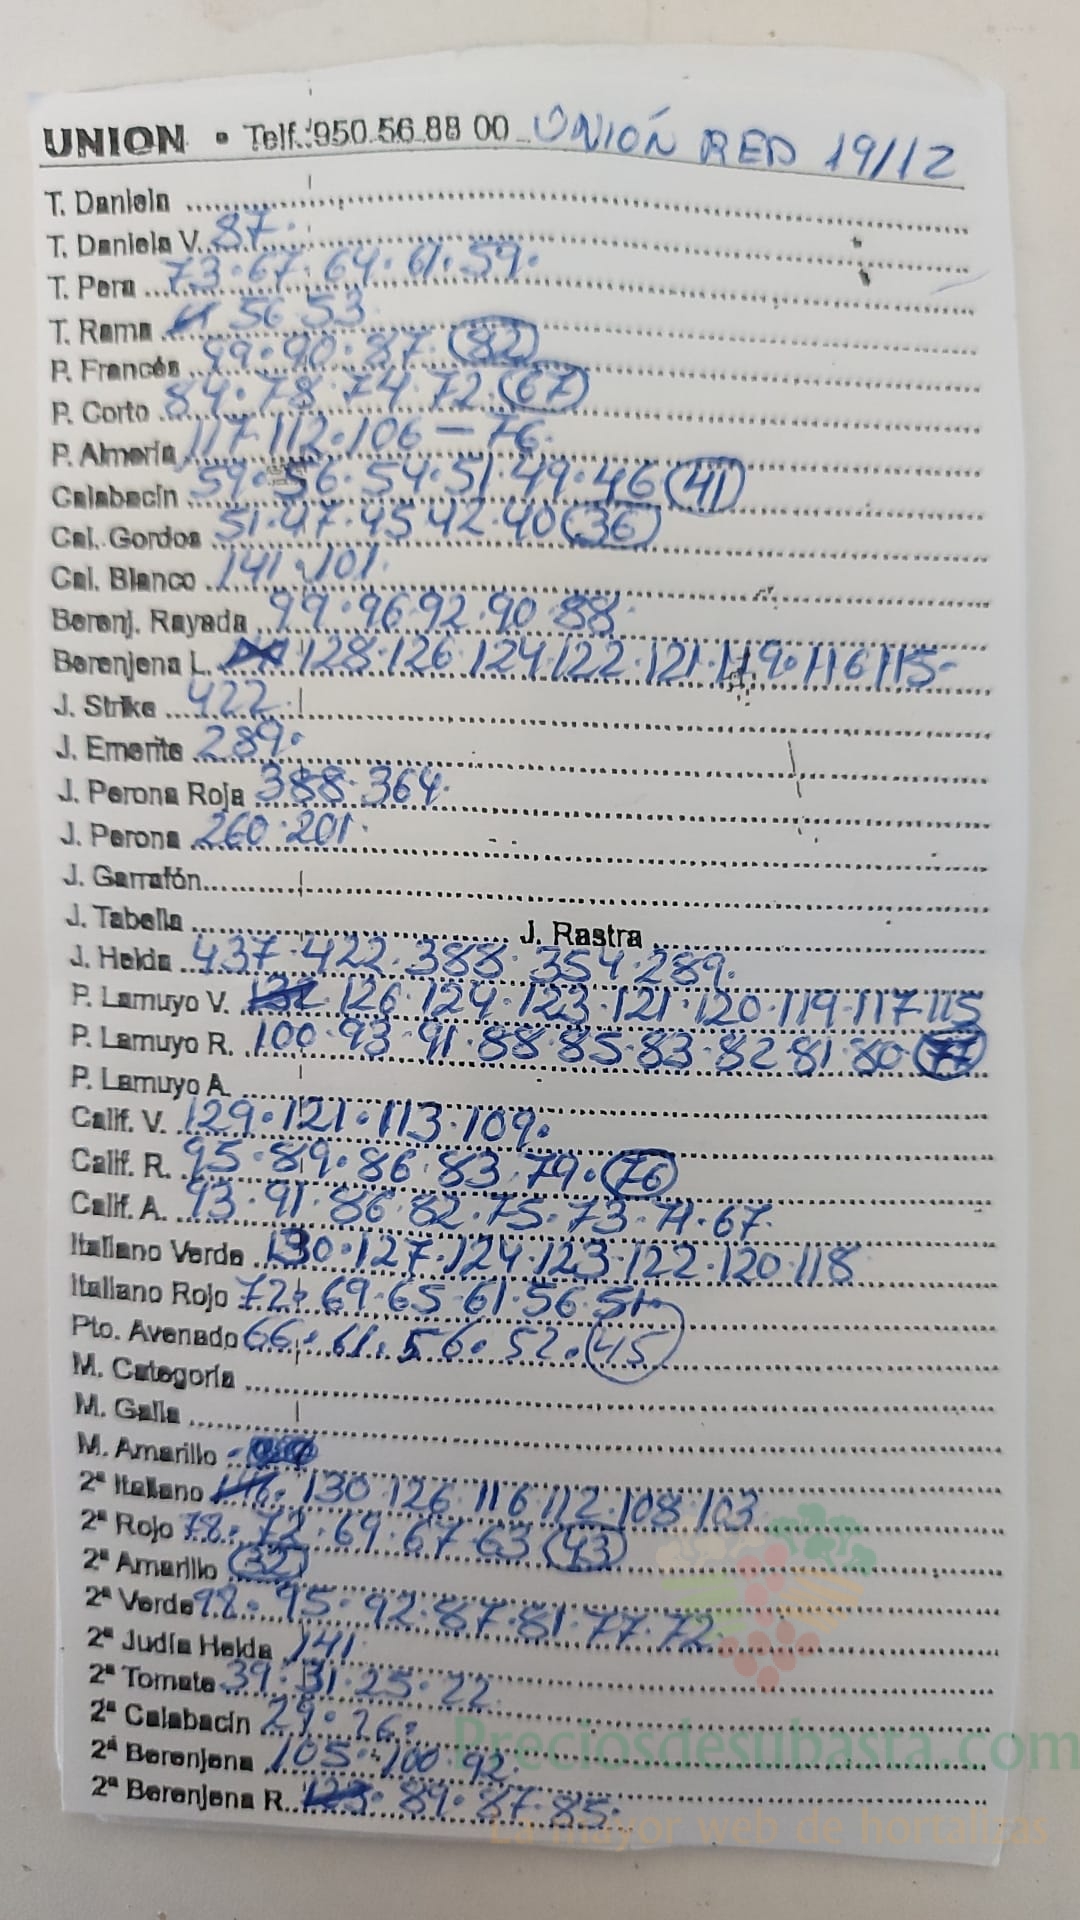 UNION • Telf. 950 56 88 00 UNIÓN RED 19/12
T. Daniela
T. Daniela V. 87.
T. Pera 73. 67. 64. 61. 59.
T. Rama 56 53
P. Francés 99. 90. 87. 82
P. Corto 84. 78 74 72. 67
P. Almería 117. 112. 106 - 76.
Calabacín 59. 56. 54. 51. 49. 46 41
Cal. Gordos 51. 47. 45 42. 40 36
Cal. Blanco 141. 101.
Berenj. Rayada 99. 96. 92. 90 88.
Berenjena L. 128. 126. 124. 122. 121. 119. 116 115-
J. Strike 422
J. Emerite 289.
J. Perona Roja 388. 364.
J. Perona 260. 201.
J. Garrafón
J. Tabella J. Rastra
J. Helda 437. 422. 388. 354. 289.
P. Lamuyo V. 126. 124. 123. 121. 120. 119. 117. 115
P. Lamuyo R. 100. 93. 91. 88. 85. 83. 82 81. 80. 77
P. Lamuyo A.
Calif. V. 129. 121. 113. 109.
Calif. R. 95. 89. 86. 83. 79. 76
Calif. A. 93. 91. 86. 82. 75. 73. 71. 67.
Italiano Verde 130. 127. 124. 123. 122. 120. 118
Italiano Rojo 72. 69. 65. 61. 56. 51.
Pto. Avenado 66. 61. 56. 52. 45
M. Categoría
M. Galia
M. Amarillo
2ª Italiano 130. 126. 116. 112. 108. 103
2ª Rojo 78. 72. 69. 67. 63 43
2ª Amarillo 32
2ª Verde 98. 95. 92. 87. 81. 77. 72.
2ª Judía Helda 141.
2ª Tomate 39. 31. 25. 22
2ª Calabacín 29. 26.
2ª Berenjena 105. 100 92.
2ª Berenjena R. 89. 87. 85.
Preciosdesubasta.com
La mayor web de hortalizas